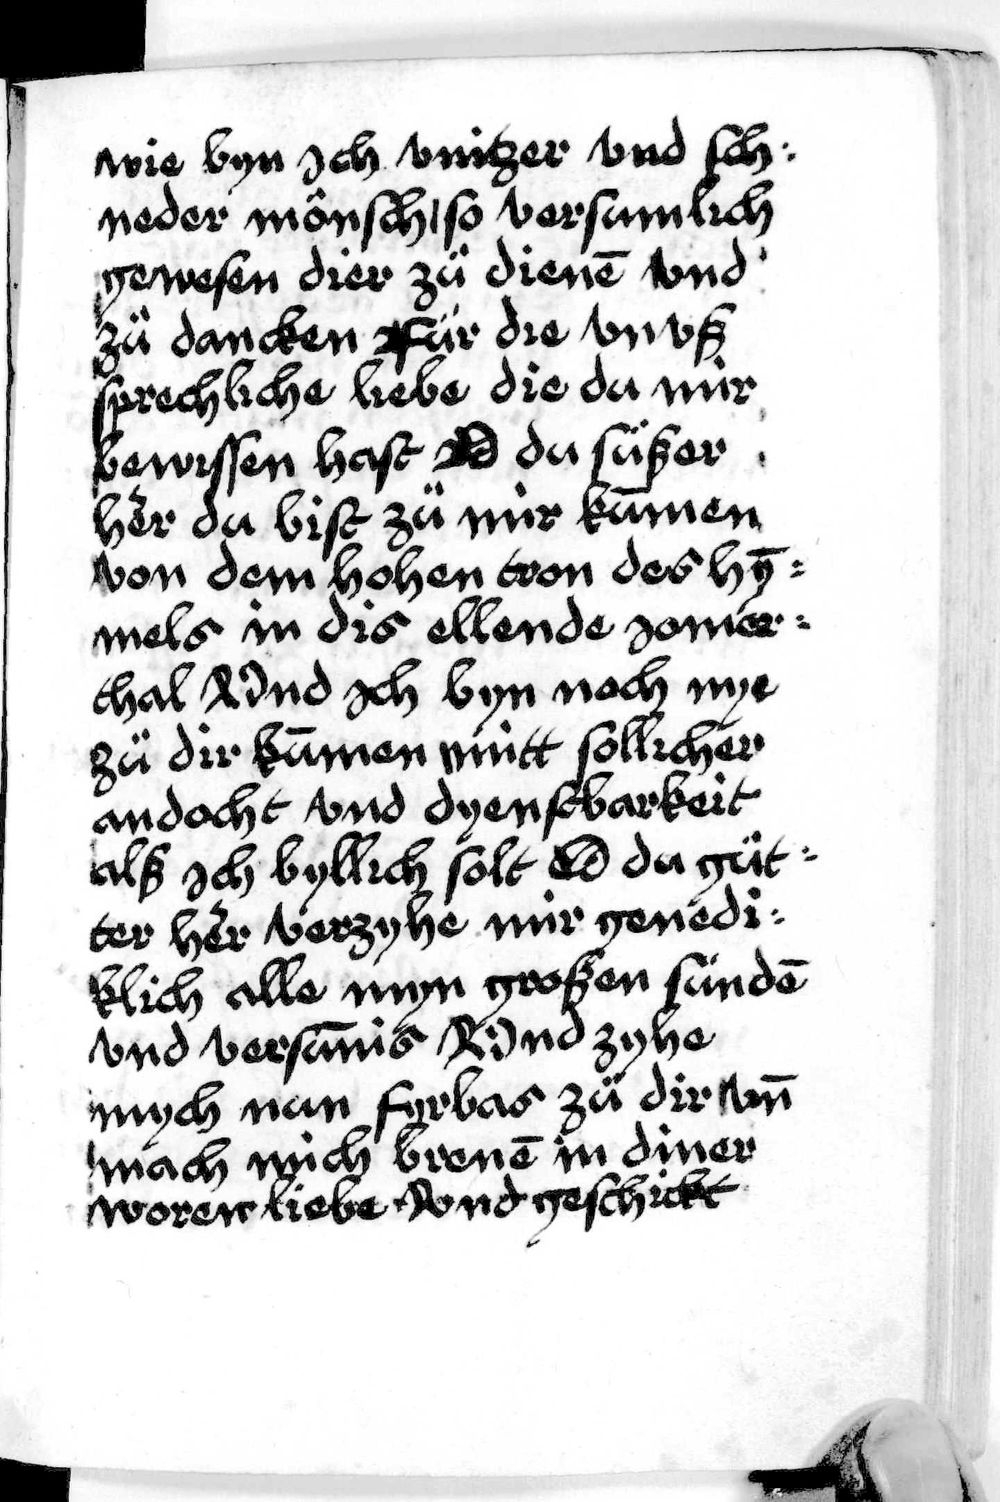 wie byn Jch vnitzer vnd sch:
neder mônsch / so versumlich
gewesen dier zü dienē vnd
zü dancken Für die vnvß
sprechliche liebe die du mir
bewissen hast O du süßer
hēr du bist zü mir kūmen
von dem hohen tron des hȳ:
mels in dis ellende Jomer:
thal Vnd Jch byn noch nye
zü dir kūmen mitt sollicher
andocht vnd dyenstbarkeit
alß Jch byllich solt O du güt:
ter hēr verzyhe mir genedi:
klich alle myn großen sündē
vnd versūnis Vnd zyhe
mych nun fyrbas zü dir vn̄
mach mich brenē in diner
worer liebe Vnd geschickt